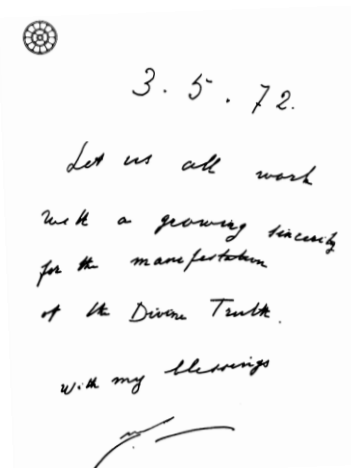 3.5.72.
Let us all work
with a growing sincerity
for the manifestation
of the Divine Truth.
with my blessings